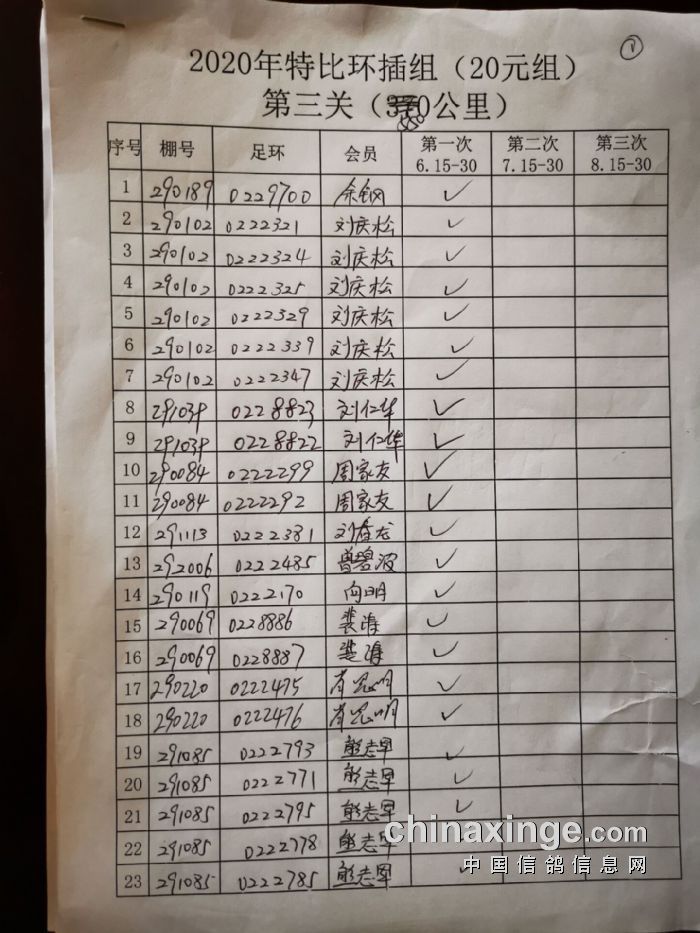 ①
2020年特比环插组（20元组）
第三关（0公里）
序号 棚号 足环 会员 第一次 6.15-30 第二次 7.15-30 第三次 8.15-30
1 290189 0229700 余钢 ✓
2 290102 0222321 刘庆松 ✓
3 290102 0222324 刘庆松 ✓
4 290102 0222325 刘庆松 ✓
5 290102 0222329 刘庆松 ✓
6 290102 0222339 刘庆松 ✓
7 290102 0222347 刘庆松 ✓
8 291039 0228823 刘仁华 ✓
9 291039 0228822 刘仁华 ✓
10 290084 0222299 周家友 ✓
11 290084 0222292 周家友 ✓
12 291113 0222381 ✓
13 292006 0222485 曾碧波 ✓
14 290119 0222170 向明 ✓
15 290069 0228886 裴海 ✓
16 290069 0228887 裴海 ✓
17 290220 0222475 肖昆明 ✓
18 290220 0222476 肖昆明 ✓
19 291085 0222793 熊志军 ✓
20 291085 0222771 熊志军 ✓
21 291085 0222795 熊志军 ✓
22 291085 0222778 熊志军
23 291085 0222785 熊志军 ✓
chinaxinge.com
中国信鸽信息网